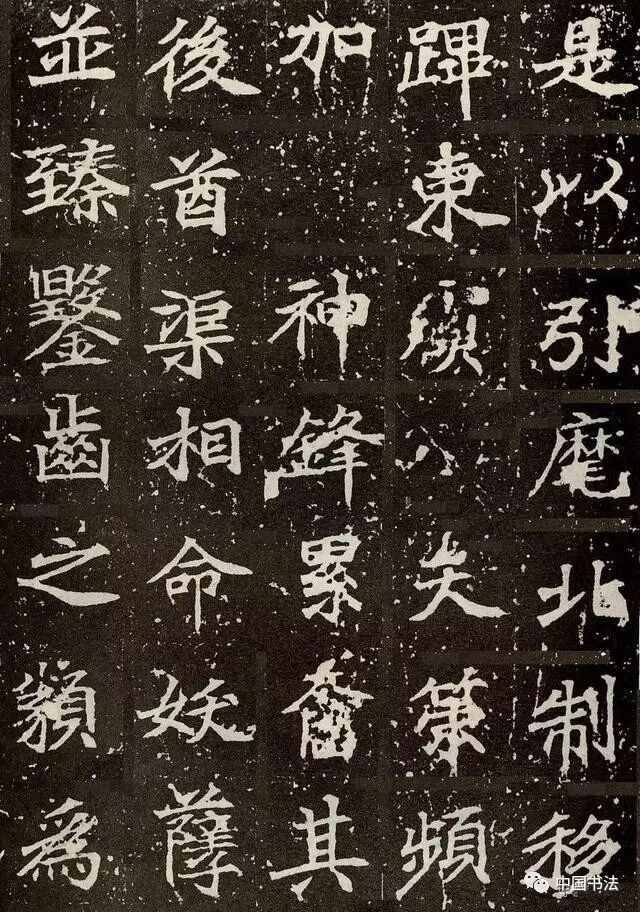 是以引麾北制移
蹕東八矢策頻
加神鋒累奮其
後酋渠相命妖孽
並臻鑿齒之類為
中国书法